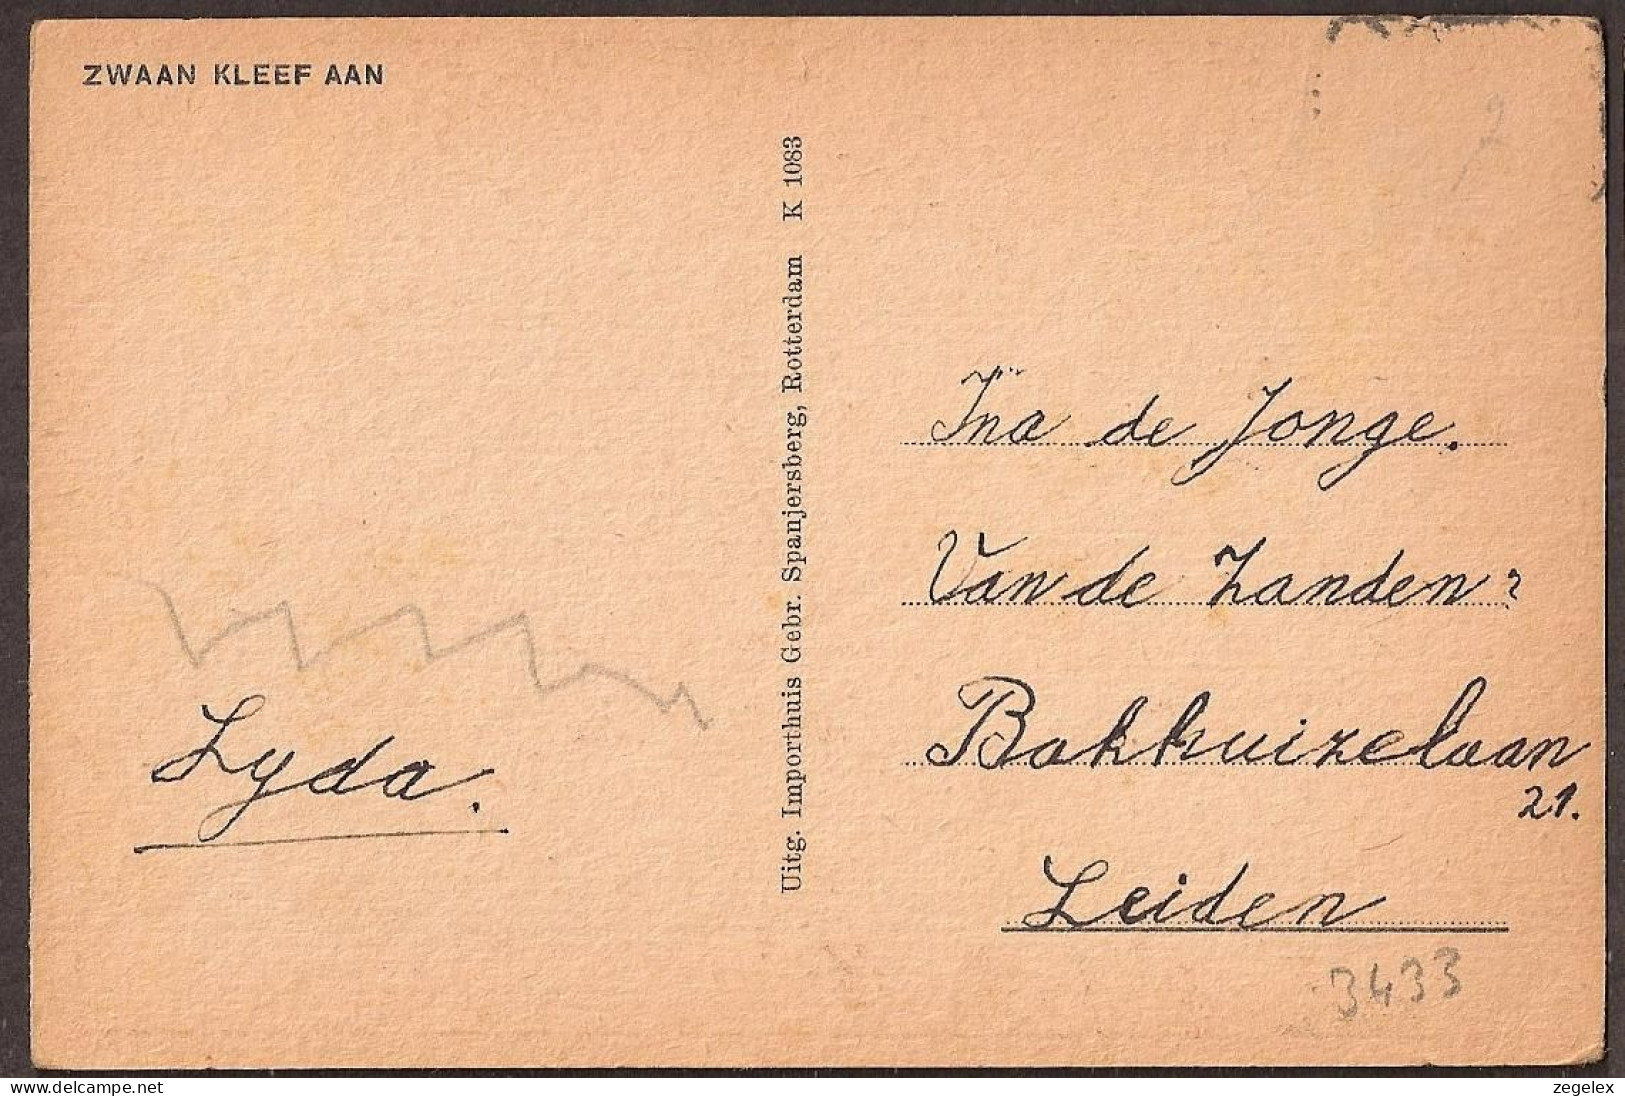 ZWAAN KLEEF AAN
Uitg. Importhuis Gebr. Spanjersberg, Rotterdam K 1083
Lyda.
Ina de Jonge.
Van de Zanden=
Bakhuizelaan
21.
Leiden
3433
www.delcampe.net
zegelex